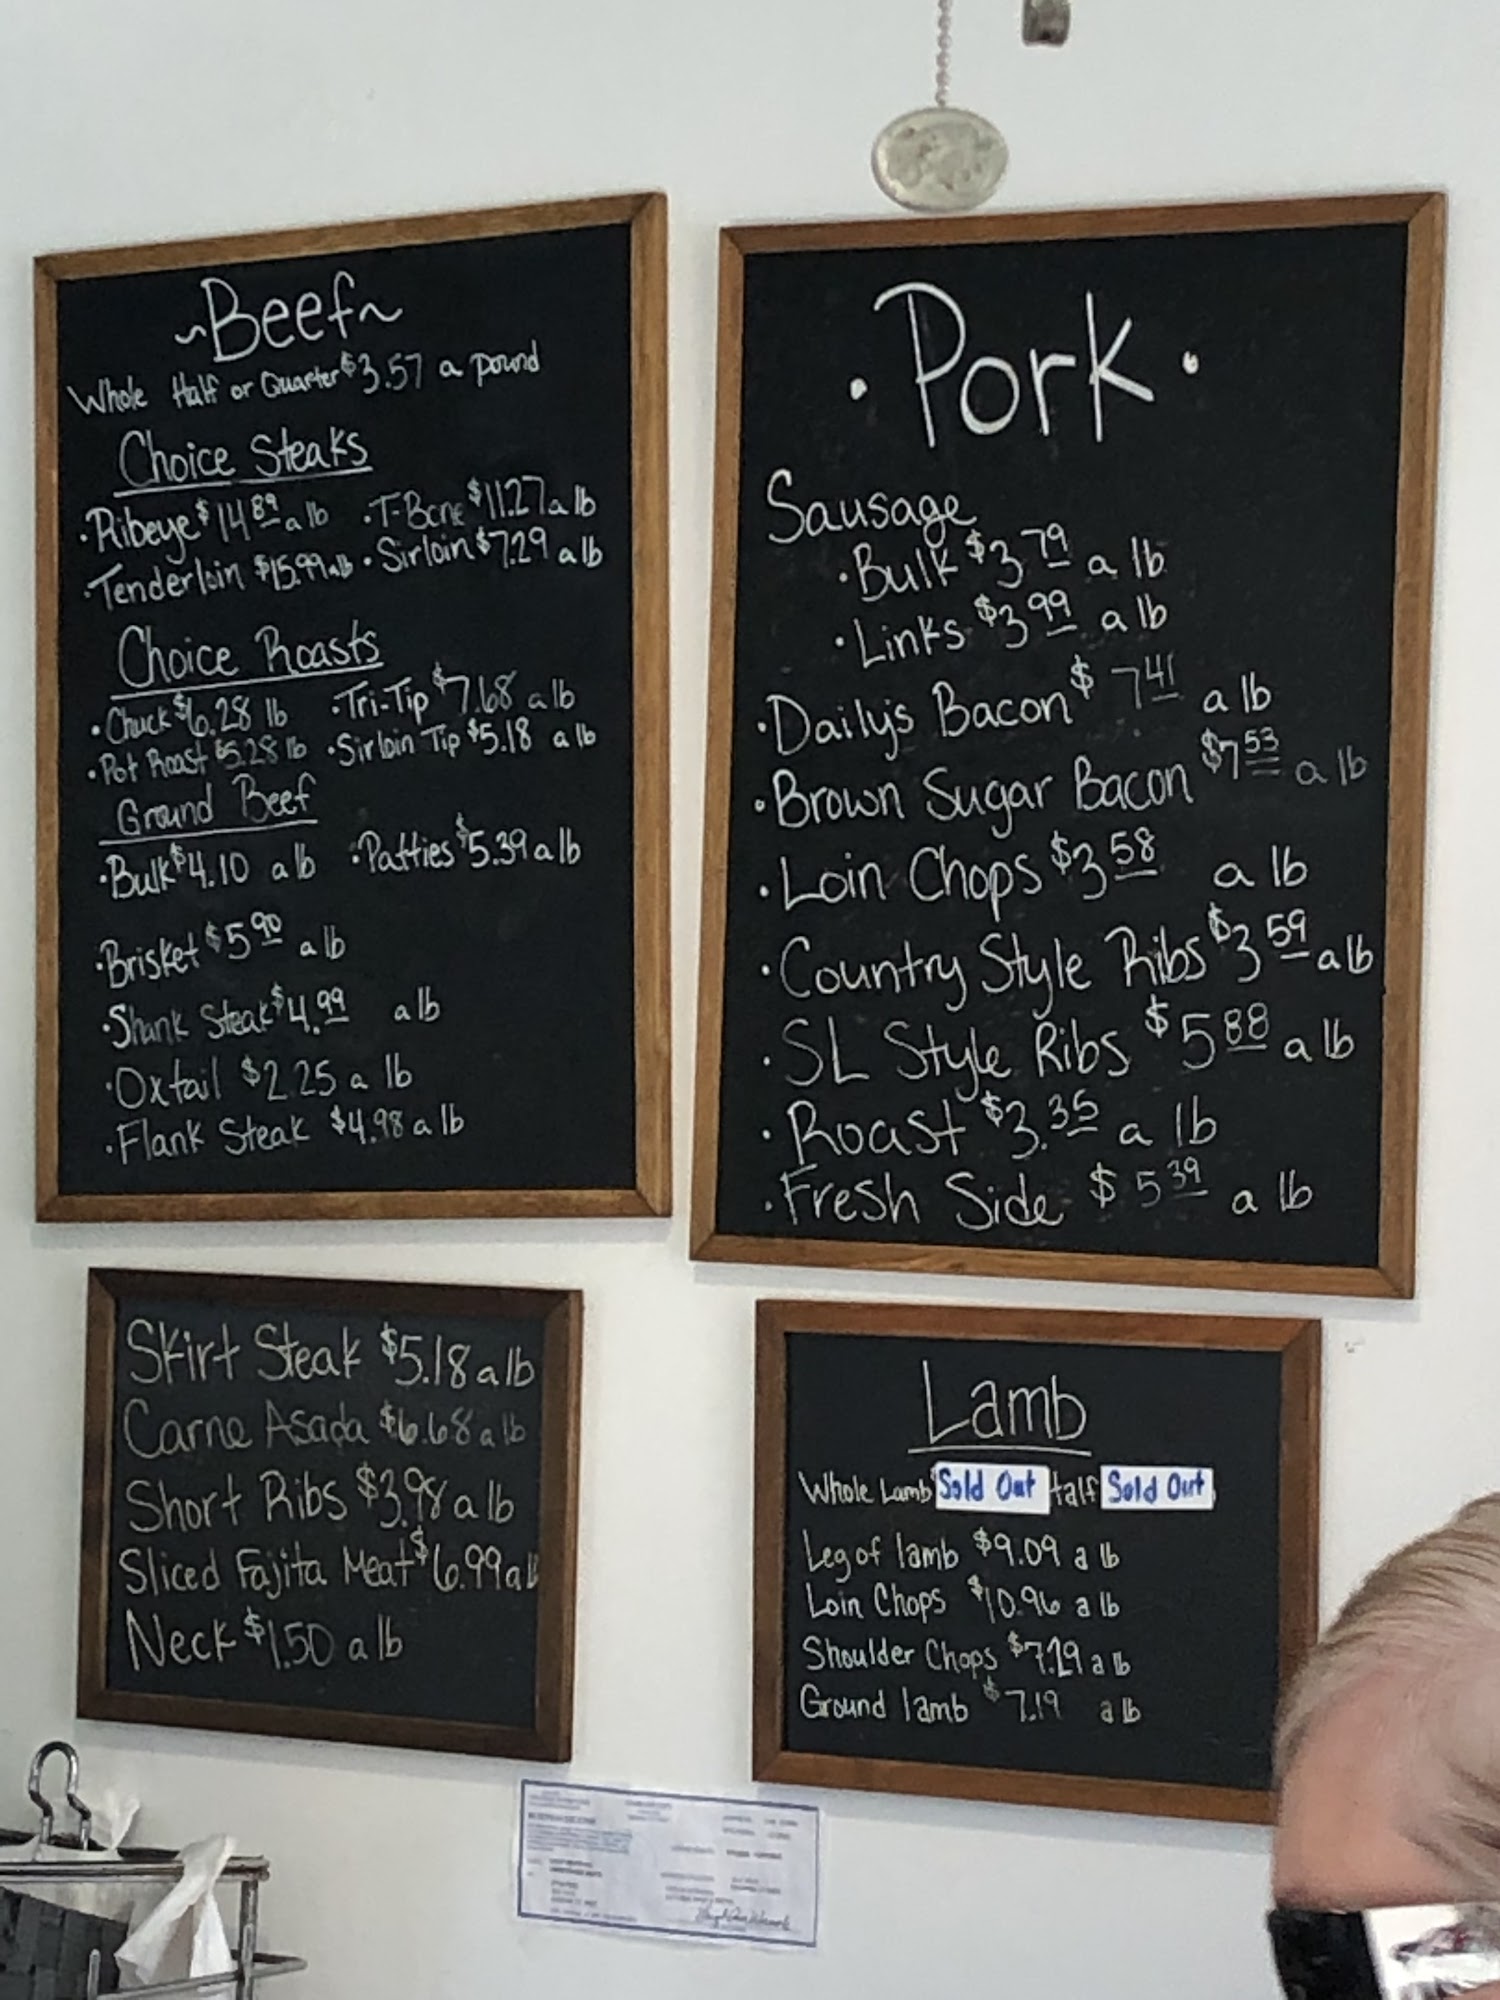 ~Beef~
Whole Half or Quarter $3.57 a pound
Choice Steaks
·Ribeye $14.89 a lb ·T-Bone $11.27 a lb
·Tenderloin $15.99 a lb ·Sirloin $7.29 a lb
Choice Roasts
·Chuck $6.28 lb ·Tri-Tip $7.68 a lb
·Pot Roast $5.28 lb ·Sirloin Tip $5.18 a lb
Ground Beef
·Bulk $4.10 a lb ·Patties $5.39 a lb
·Brisket $5.90 a lb
·Shank Steak $4.99 a lb
·Oxtail $2.25 a lb
·Flank Steak $4.98 a lb
·Pork·
Sausage
·Bulk $3.79 a lb
·Links $3.99 a lb
·Daily's Bacon $7.41 a lb
·Brown Sugar Bacon $7.53 a lb
·Loin Chops $3.58 a lb
·Country Style Ribs $3.59 a lb
·SL Style Ribs $5.88 a lb
·Roast $3.35 a lb
·Fresh Side $5.39 a lb
Skirt Steak $5.18 a lb
Carne Asada $6.68 a lb
Short Ribs $3.98 a lb
Sliced Fajita Meat $6.99 a lb
Neck $1.50 a lb
Lamb
Whole Lamb Sold Out Half Sold Out
Leg of lamb $9.09 a lb
Loin Chops $10.96 a lb
Shoulder Chops $7.29 a lb
Ground lamb $7.19 a lb